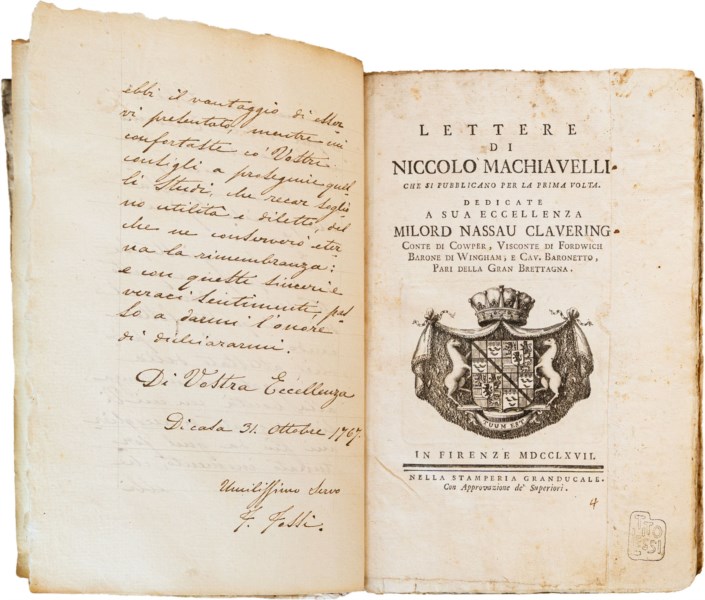 ebbi il vantaggio di esser-
vi presentato, mentre mi
confortaste co' Vostri
consigli a proseguir quel-
li Studj, che recar soglio-
no utilità e diletto, del
che ne conserverò eter-
na la rimembranza:
e con questi sinceri e
veraci sentimenti, pas-
so a darmi l'onore
di dichiararmi.
Di Vostra Eccellenza
Di casa 31. Ottobre 1767.
Umilissimo Servo
F. Fossi.
LETTERE
DI
NICCOLÒ MACHIAVELLI
CHE SI PUBBLICANO PER LA PRIMA VOLTA.
DEDICATE
A SUA ECCELLENZA
MILORD NASSAU CLAVERING
CONTE DI COWPER, VISCONTE DI FORDWICH
BARONE DI WINGHAM, E CAV. BARONETTO,
PARI DELLA GRAN BRETTAGNA.
TUUM EST
IN FIRENZE MDCCLXVII.
NELLA STAMPERIA GRANDUCALE.
Con Approvazione de' Superiori.
4